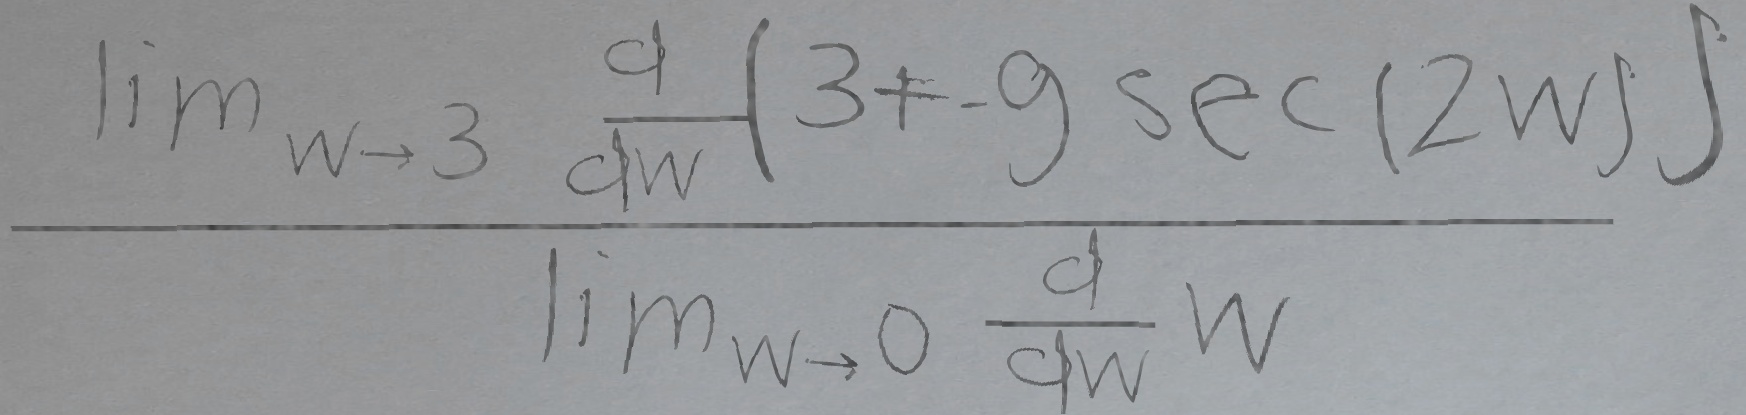 \frac{\lim_{w \to 3} \frac{d}{dw}(3 + -9 \sec(2w))}{\lim_{w \to 0} \frac{d}{dw} w}